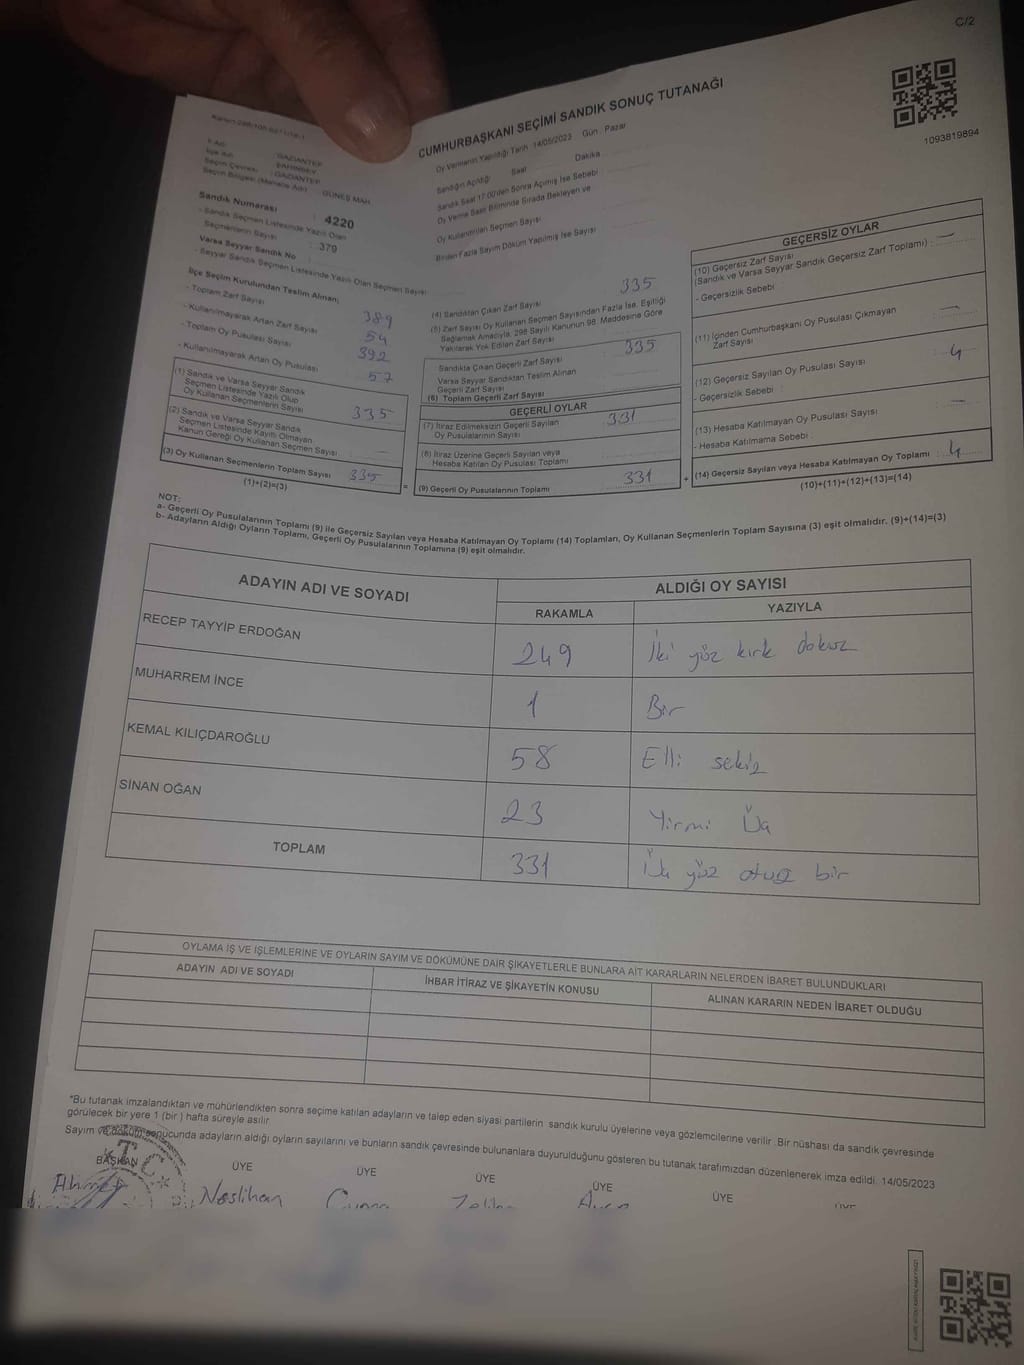 C/2
1093819894
CUMHURBAŞKANI SEÇİMİ SANDIK SONUÇ TUTANAĞI
Oy Vermenin Yapıldığı Tarih 14/05/2023 Gün : Pazar
Sandığın Açıldığı Saat Dakika
Sandık Saat 17:00'den Sonra Açılmış İse Sebebi :
Oy Verme Saati Bitiminde Sırada Bekleyen ve
Oy Kullandırılan Seçmen Sayısı
Birden Fazla Sayım Döküm Yapılmış İse Sayısı :
İl Adı : GAZİANTEP
İlçe Adı : ŞAHİNBEY
Seçim Çevresi : GAZİANTEP
Seçim Bölgesi (Mahalle Adı) : GÜNEŞ MAH.
Sandık Numarası : 4220
- Sandık Seçmen Listesinde Yazılı Olan
Seçmenlerin Sayısı : 379
Varsa Seyyar Sandık No :
- Seyyar Sandık Seçmen Listesinde Yazılı Olan Seçmen Sayısı :
İlçe Seçim Kurulundan Teslim Alınan;
- Toplam Zarf Sayısı 389
- Kullanılmayarak Artan Zarf Sayısı 54
- Toplam Oy Pusulası Sayısı 392
- Kullanılmayarak Artan Oy Pusulası 57
(1) Sandık ve Varsa Seyyar Sandık
Seçmen Listesinde Yazılı Olup
Oy Kullanan Seçmenlerin Sayısı 335
(2) Sandık ve Varsa Seyyar Sandık
Seçmen Listesinde Kayıtlı Olmayan
Kanun Gereği Oy Kullanan Seçmen Sayısı —
(3) Oy Kullanan Seçmenlerin Toplam Sayısı 335
(1)+(2)=(3)
(4) Sandıktan Çıkan Zarf Sayısı 335
(5) Zarf Sayısı Oy Kullanan Seçmen Sayısından Fazla İse, Eşitliği
Sağlamak Amacıyla, 298 Sayılı Kanunun 98. Maddesine Göre
Yakılarak Yok Edilen Zarf Sayısı
Sandıkta Çıkan Geçerli Zarf Sayısı 335
Varsa Seyyar Sandıktan Teslim Alınan
Geçerli Zarf Sayısı
(6) Toplam Geçerli Zarf Sayısı
GEÇERLİ OYLAR
(7) İtiraz Edilmeksizin Geçerli Sayılan
Oy Pusulalarının Sayısı 331
(8) İtiraz Üzerine Geçerli Sayılan veya
Hesaba Katılan Oy Pusulası Toplamı
= (9) Geçerli Oy Pusulalarının Toplamı 331
GEÇERSİZ OYLAR
(10) Geçersiz Zarf Sayısı
(Sandık ve Varsa Seyyar Sandık Geçersiz Zarf Toplamı) : —
- Geçersizlik Sebebi
(11) İçinden Cumhurbaşkanı Oy Pusulası Çıkmayan
Zarf Sayısı —
(12) Geçersiz Sayılan Oy Pusulası Sayısı 4
- Geçersizlik Sebebi :
(13) Hesaba Katılmayan Oy Pusulası Sayısı —
- Hesaba Katılmama Sebebi
+ (14) Geçersiz Sayılan veya Hesaba Katılmayan Oy Toplamı : 4
(10)+(11)+(12)+(13)=(14)
NOT:
a- Geçerli Oy Pusulalarının Toplamı (9) ile Geçersiz Sayılan veya Hesaba Katılmayan Oy Toplamı (14) Toplamları, Oy Kullanan Seçmenlerin Toplam Sayısına (3) eşit olmalıdır. (9)+(14)=(3)
b- Adayların Aldığı Oyların Toplamı, Geçerli Oy Pusulalarının Toplamına (9) eşit olmalıdır.
ADAYIN ADI VE SOYADI ALDIĞI OY SAYISI
RAKAMLA YAZIYLA
RECEP TAYYİP ERDOĞAN 249 İki yüz kırk dokuz
MUHARREM İNCE 1 Bir
KEMAL KILIÇDAROĞLU 58 Elli sekiz
SİNAN OĞAN 23 Yirmi Üç
TOPLAM 331 Üç yüz otuz bir
OYLAMA İŞ VE İŞLEMLERİNE VE OYLARIN SAYIM VE DÖKÜMÜNE DAİR ŞİKAYETLERLE BUNLARA AİT KARARLARIN NELERDEN İBARET BULUNDUKLARI
ADAYIN ADI VE SOYADI İHBAR İTİRAZ VE ŞİKAYETİN KONUSU ALINAN KARARIN NEDEN İBARET OLDUĞU
*Bu tutanak imzalandıktan ve mühürlendikten sonra seçime katılan adayların ve talep eden siyasi partilerin sandık kurulu üyelerine veya gözlemcilerine verilir. Bir nüshası da sandık çevresinde
görülecek bir yere 1 (bir) hafta süreyle asılır
Sayım ve döküm sonucunda adayların aldığı oyların sayılarını ve bunların sandık çevresinde bulunanlara duyurulduğunu gösteren bu tutanak tarafımızdan düzenlenerek imza edildi. 14/05/2023
BAŞKAN ÜYE ÜYE ÜYE ÜYE ÜYE ÜYE
T.C.
Ahmet Neslihan Cuma